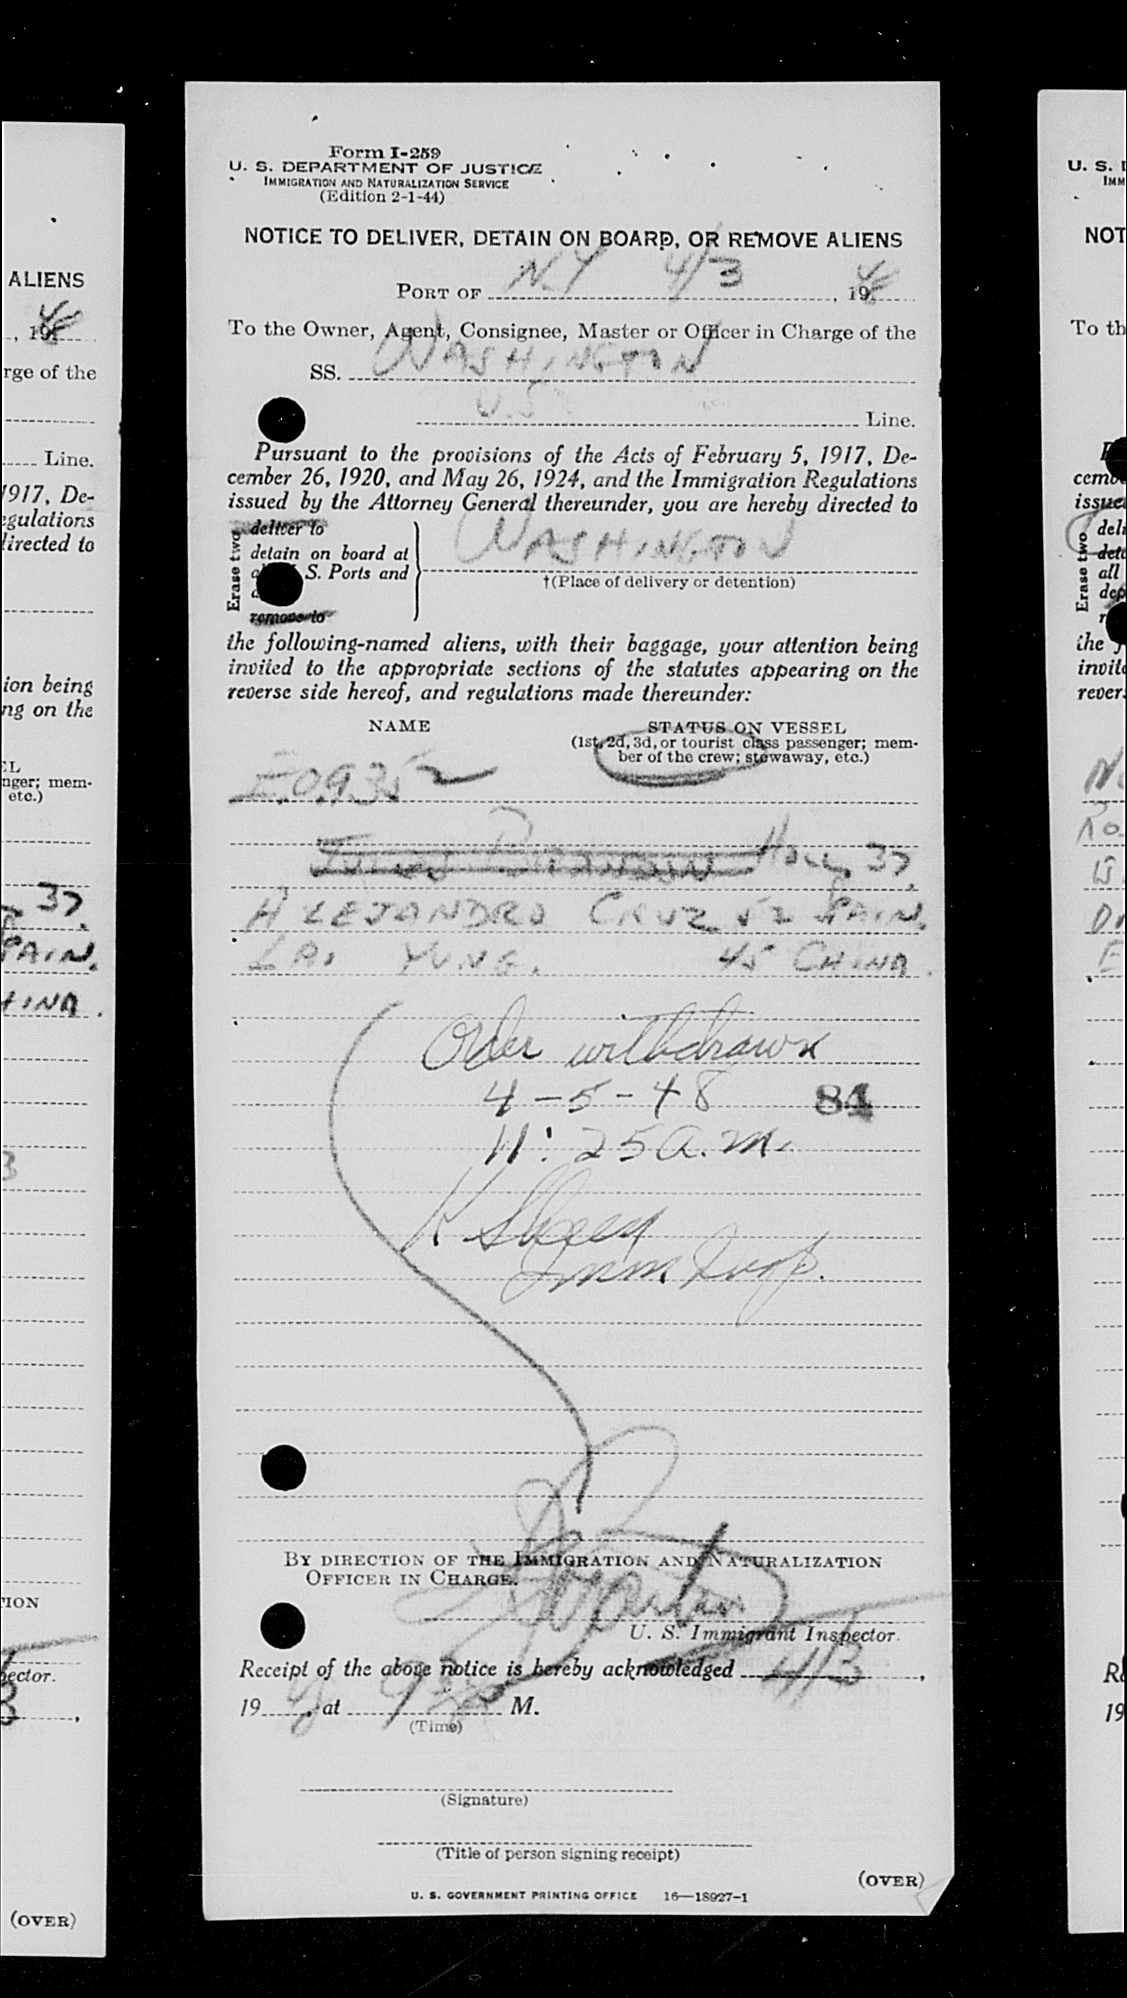 Form I-259
U. S. DEPARTMENT OF JUSTICE
IMMIGRATION AND NATURALIZATION SERVICE
(Edition 2-1-44)
NOTICE TO DELIVER, DETAIN ON BOARD, OR REMOVE ALIENS
PORT OF N.Y 4/3, 1948
To the Owner, Agent, Consignee, Master or Officer in Charge of the
SS. WASHINGTON
U.S. Line.
Pursuant to the provisions of the Acts of February 5, 1917, De-
cember 26, 1920, and May 26, 1924, and the Immigration Regulations
issued by the Attorney General thereunder, you are hereby directed to
Erase two
deliver to
detain on board at
S. Ports and
remove to
WASHINGTON
†(Place of delivery or detention)
the following-named aliens, with their baggage, your attention being
invited to the appropriate sections of the statutes appearing on the
reverse side hereof, and regulations made thereunder:
NAME
STATUS ON VESSEL
(1st, 2d, 3d, or tourist class passenger; mem-
ber of the crew; stowaway, etc.)
E.0935 2
HOLL. 37.
ALEJANDRO CRUZ 52 SPAIN.
LAI YUNG. 45 CHINA.
Order withdrawn
4-5-48 84
11:25 a.m.
K Sheen
Imm Insp.
BY DIRECTION OF THE IMMIGRATION AND NATURALIZATION
OFFICER IN CHARGE.
U. S. Immigrant Inspector.
Receipt of the above notice is hereby acknowledged 4/3,
1948, at M.
(Time)
(Signature)
(Title of person signing receipt)
(OVER)
U. S. GOVERNMENT PRINTING OFFICE 16—18927-1
ALIENS
, 1948
rge of the
Line.
1917, De-
egulations
directed to
ion being
ng on the
nger; mem-
etc.)
37.
PAIN.
HINA.
ION
pector.
(OVER)
U. S.
IMM
NOT
To th
cemb
issue
Erase two
all
the
invite
rever
19